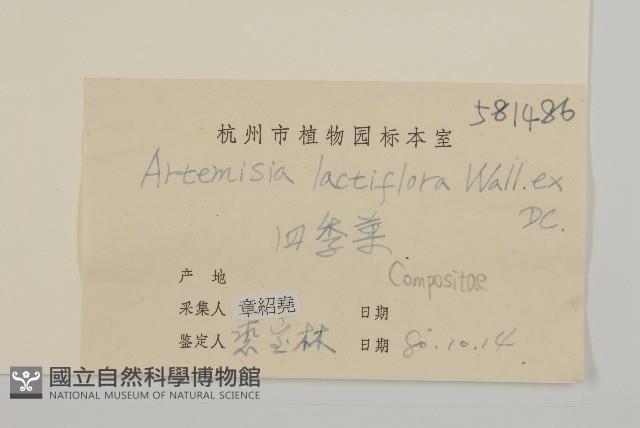 581486
杭州市植物园标本室
Artemisia lactiflora Wall. ex
DC.
四季菜
产 地
Compositae
采集人 章紹堯 日期
鉴定人 林 日期 80.10.14
國立自然科學博物館
NATIONAL MUSEUM OF NATURAL SCIENCE